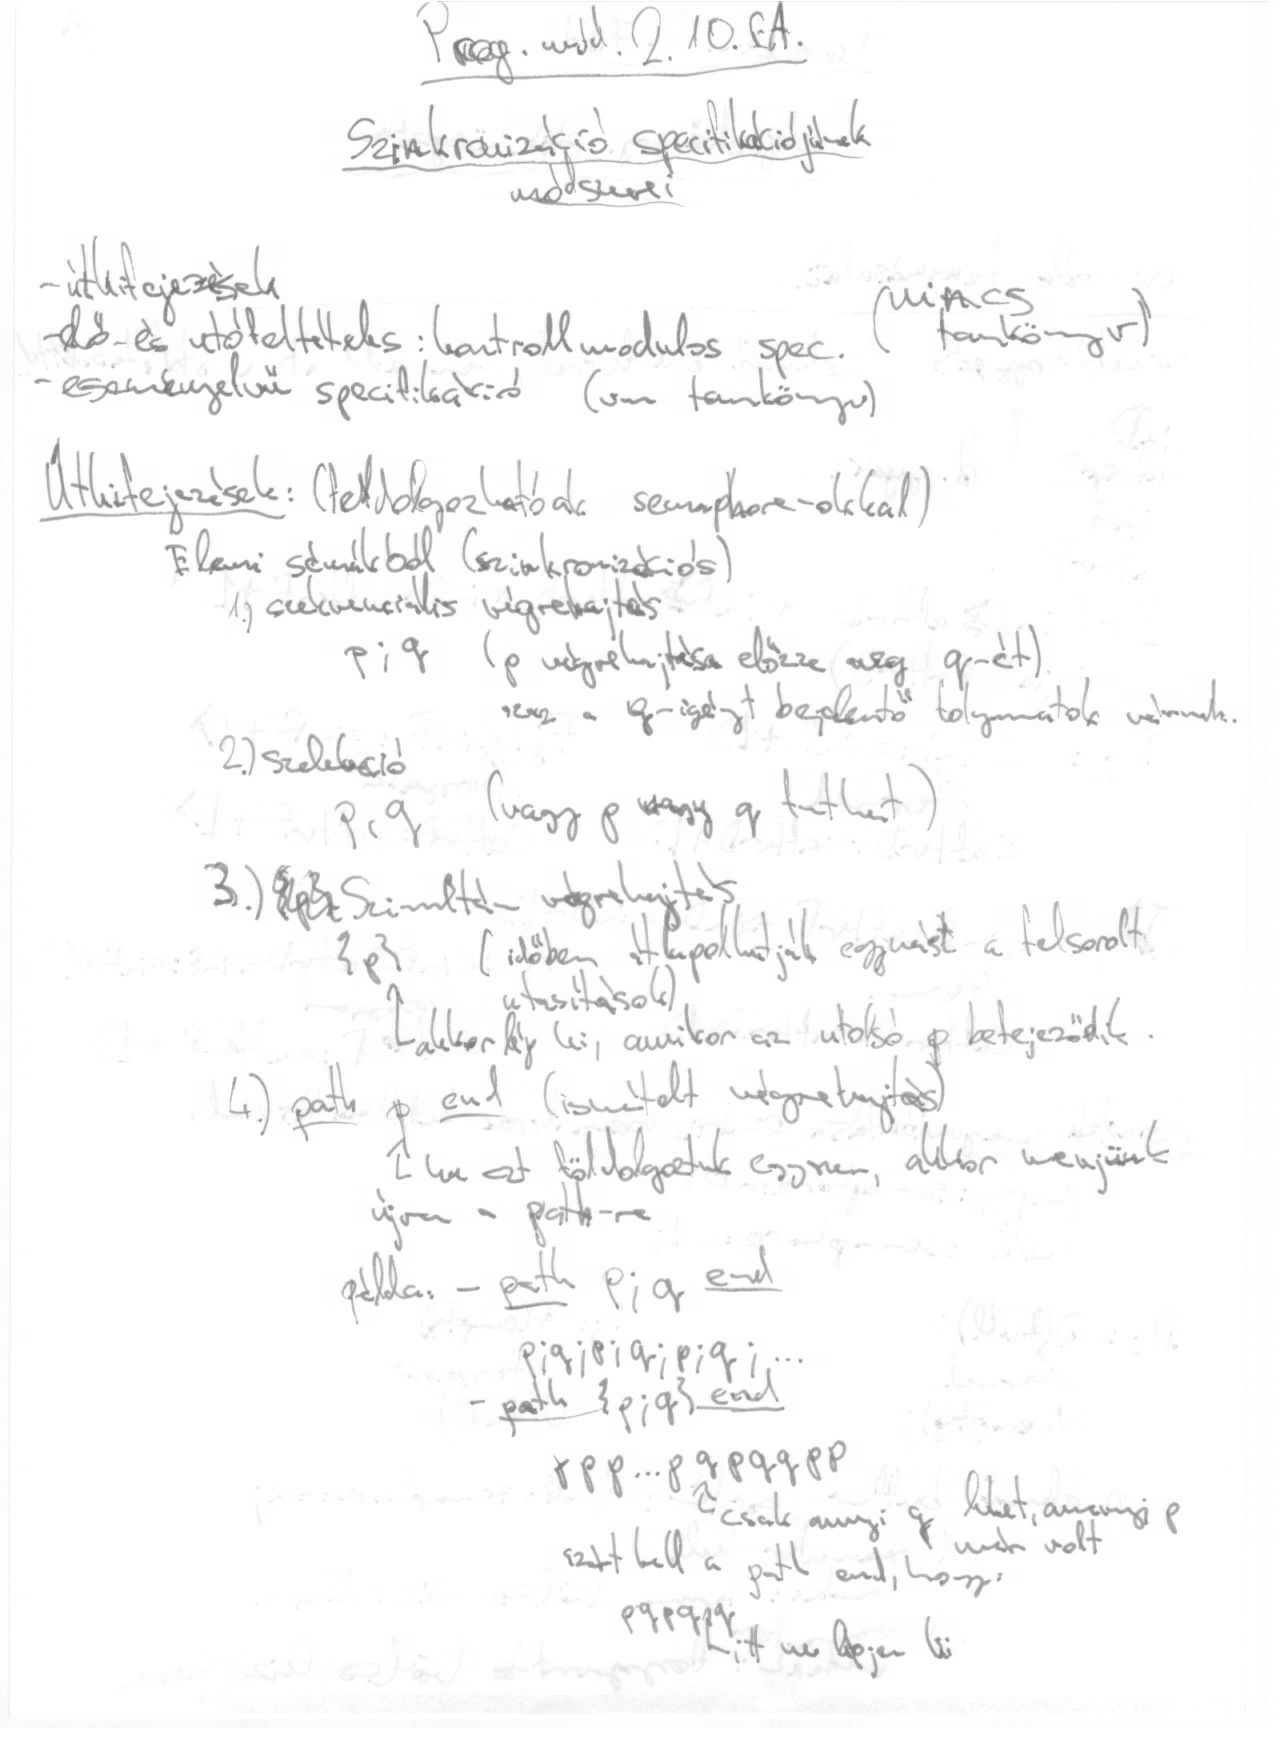 Prog. mód. 2. 10. EA.
Szinkronizáció specifikációjának
módszerei
- útkifejezések
- elő- és utófeltételes : kontrollmodulos spec. (nincs
tankönyv)
- eseményelvű specifikáció (van tankönyv)
Útkifejezések: (feldolgozhatóak semaphore-okkal)
Elemi sémákból (szinkronizációs)
1.) szekvenciális végrehajtás
p ; q (p végrehajtása előzze meg q-ét)
azaz a q-igényt bejelentő folyamatok várnak.
2.) szelekció
p , q (vagy p vagy q futhat)
3.) Szimultán végrehajtás
{p} (időben átlapolhatják egymást a felsorolt
utasítások)
akkor lép ki, amikor az utolsó p befejeződik.
4.) path p end (ismételt végrehajtás)
ha ezt földolgoztuk egyszer, akkor menjünk
újra a path-re
példa: - path p ; q end
p;q;p;q;p;q;...
- path {p;q} end
p p p ... p q p q q p p
csak annyi q lehet, amennyi p
már volt
azért kell a path end, hogy:
p q p q p q
itt ne lépjen ki